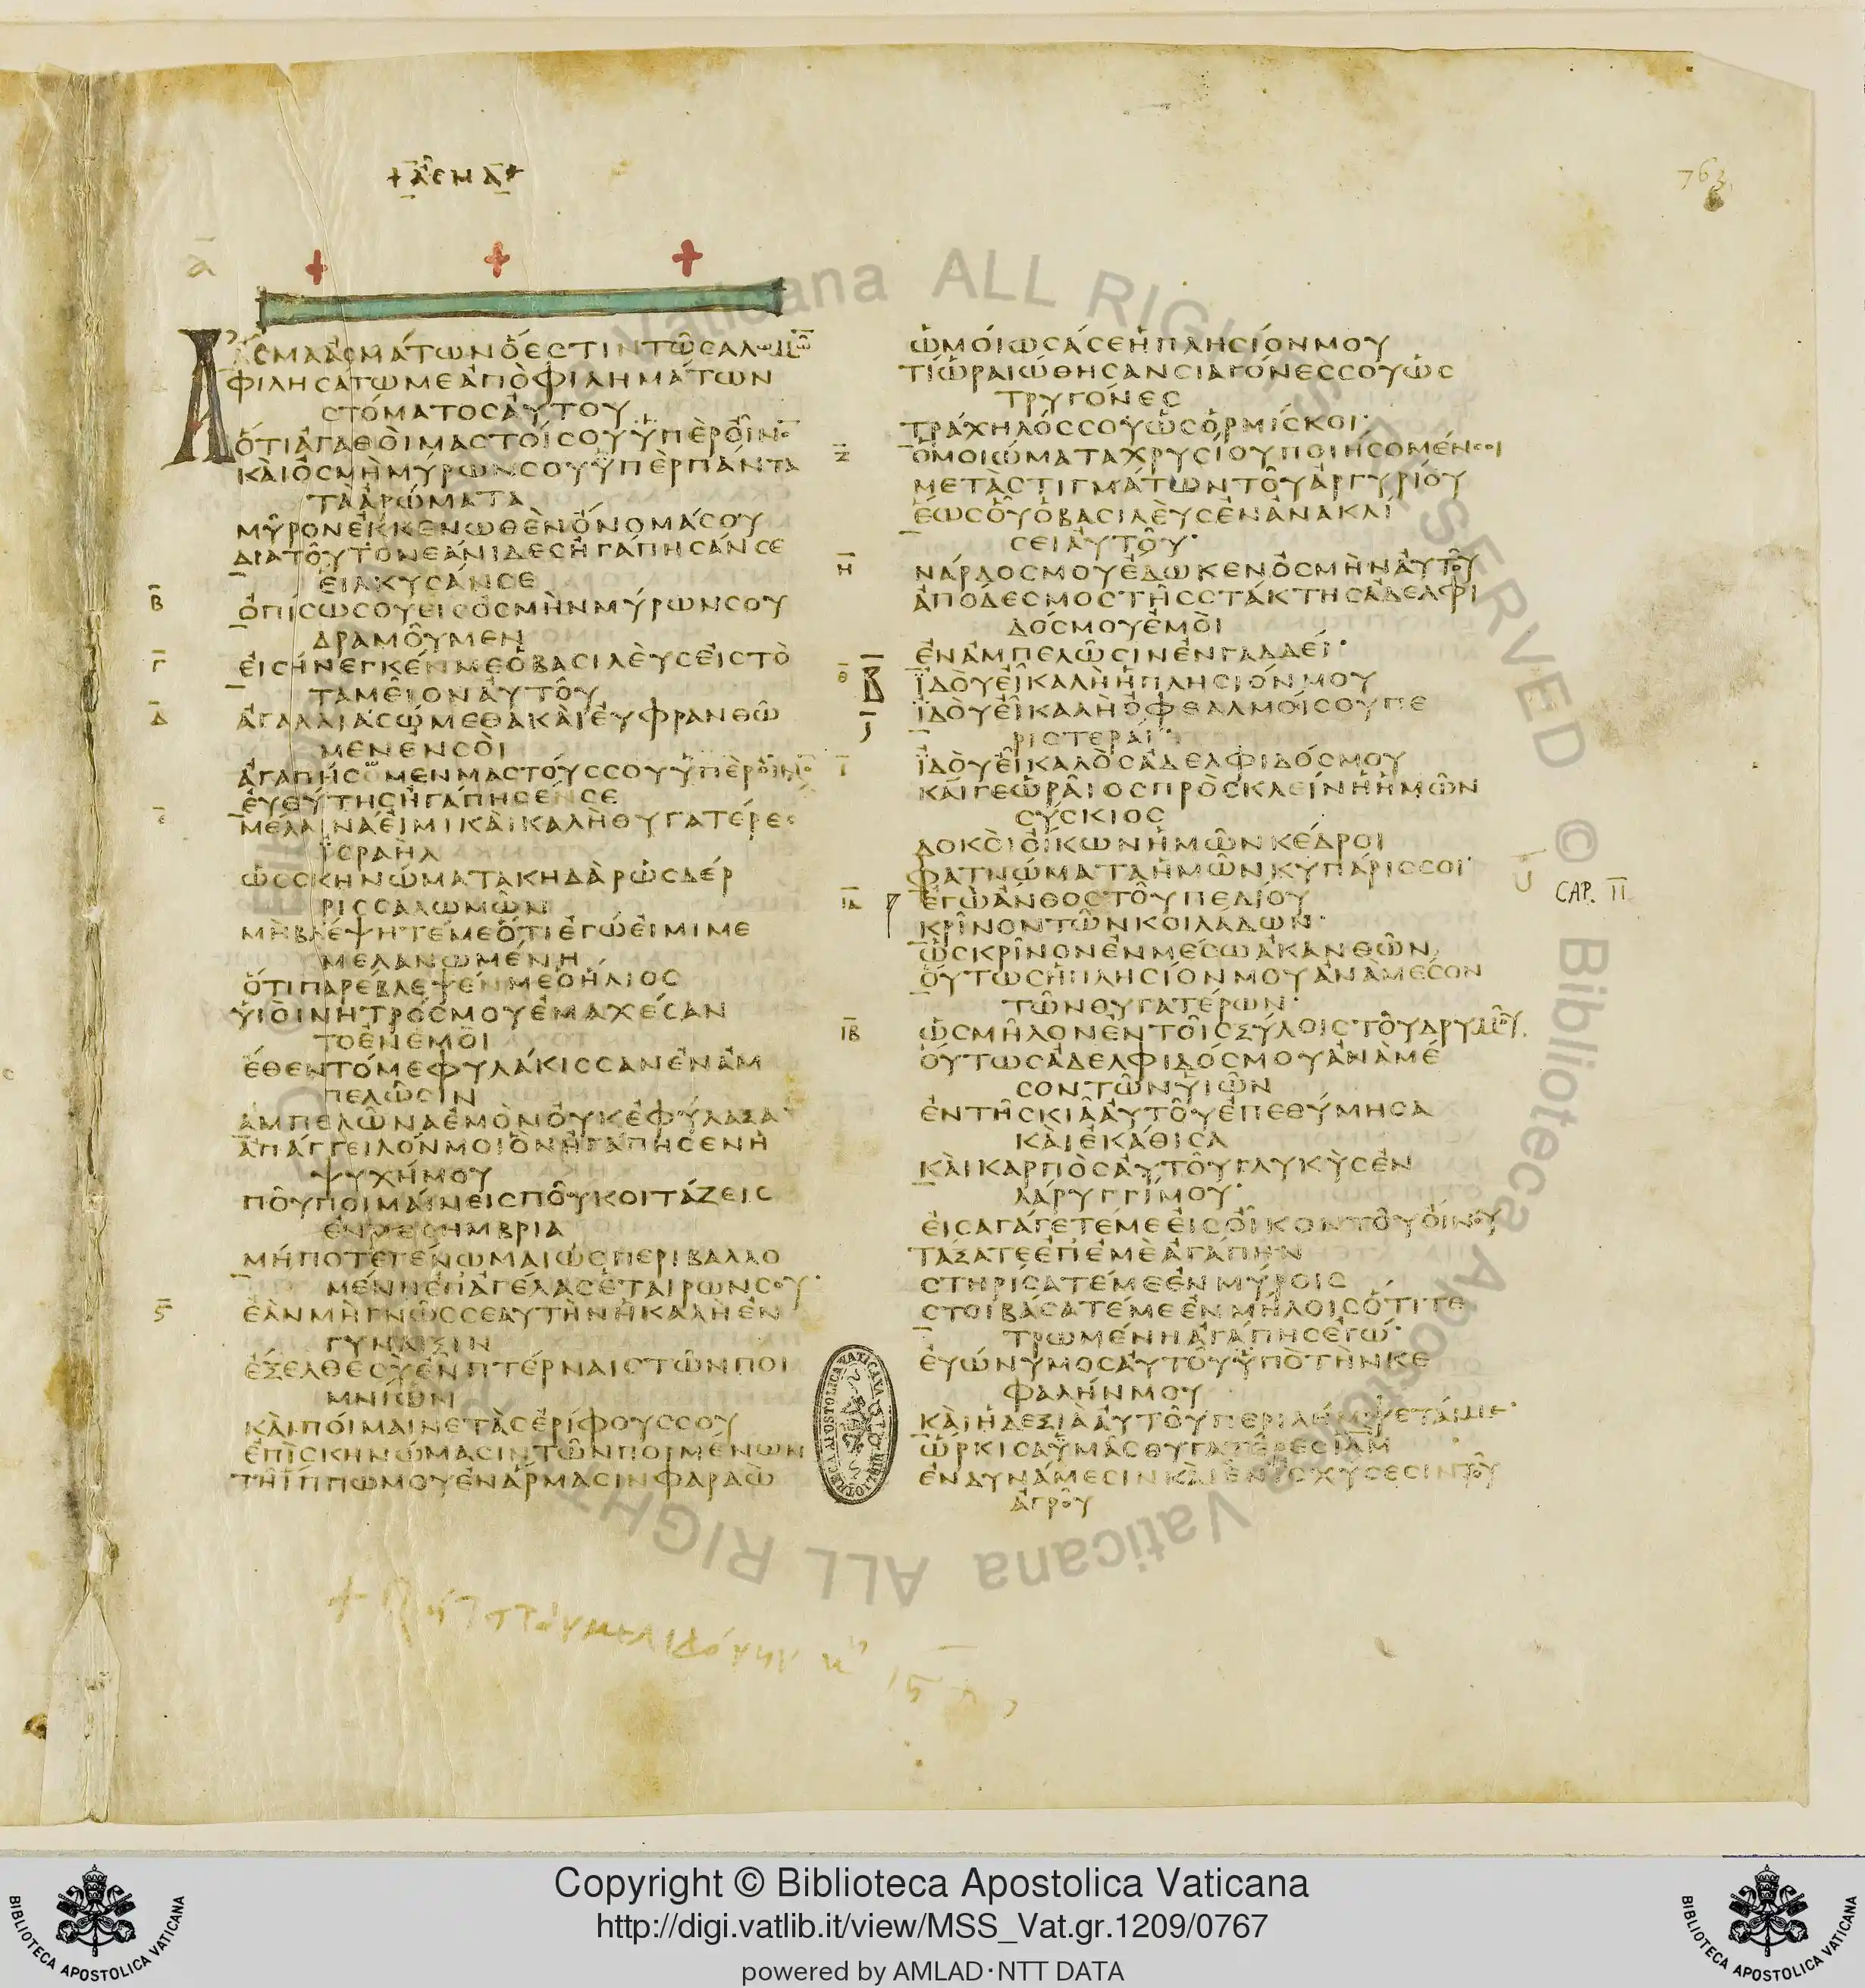 + ᾆσμα +
763
ᾱ
ΑΣΜΑΑΣΜΑΤΩΝΟΕΣΤΙΝΤΩΣΑΛΩΜΩ
ΦΙΛΗΣΑΤΩΜΕΑΠΟΦΙΛΗΜΑΤΩΝ
ΣΤΟΜΑΤΟΣΑΥΤΟΥ
ΟΤΙΑΓΑΘΟΙΜΑΣΤΟΙΣΟΥΥΠΕΡΟΙΝΟ
ΚΑΙΟΣΜΗΜΥΡΩΝΣΟΥΥΠΕΡΠΑΝΤΑ
ΤΑΑΡΩΜΑΤΑ
ΜΥΡΟΝΕΚΚΕΝΩΘΕΝΟΝΟΜΑΣΟΥ
ΔΙΑΤΟΥΤΟΝΕΑΝΙΔΕΣΗΓΑΠΗΣΑΝΣΕ
ΕΙΛΚΥΣΑΝΣΕ
Β ΟΠΙΣΩΣΟΥΕΙΣΟΣΜΗΝΜΥΡΩΝΣΟΥ
ΔΡΑΜΟΥΜΕΝ
Γ ΕΙΣΗΝΕΓΚΕΝΜΕΟΒΑΣΙΛΕΥΣΕΙΣΤΟ
ΤΑΜΕΙΟΝΑΥΤΟΥ
Δ ΑΓΑΛΛΙΑΣΩΜΕΘΑΚΑΙΕΥΦΡΑΝΘΩ
ΜΕΝΕΝΣΟΙ
ΑΓΑΠΗΣΟΜΕΝΜΑΣΤΟΥΣΣΟΥΥΠΕΡΟΙΝΟ
ΕΥΘΥΤΗΣΗΓΑΠΗΣΕΝΣΕ
Ε ΜΕΛΑΙΝΑΕΙΜΙΚΑΙΚΑΛΗΘΥΓΑΤΕΡΕΣ
ΙΣΡΑΗΛ
ΩΣΣΚΗΝΩΜΑΤΑΚΗΔΑΡΩΣΔΕΡ
ΡΙΣΣΑΛΩΜΩΝ
ΜΗΒΛΕΨΗΤΕΜΕΟΤΙΕΓΩΕΙΜΙΜΕ
ΜΕΛΑΝΩΜΕΝΗ
ΟΤΙΠΑΡΕΒΛΕΨΕΝΜΕΟΗΛΙΟΣ
ΥΙΟΙΜΗΤΡΟΣΜΟΥΕΜΑΧΕΣΑΝ
ΤΟΕΝΕΜΟΙ
ΕΘΕΝΤΟΜΕΦΥΛΑΚΙΣΣΑΝΕΝΑΜ
ΠΕΛΩΣΙΝ
ΑΜΠΕΛΩΝΑΕΜΟΝΟΥΚΕΦΥΛΑΞΑ
ΑΠΑΓΓΕΙΛΟΝΜΟΙΟΝΗΓΑΠΗΣΕΝΗ
ΨΥΧΗΜΟΥ
ΠΟΥΠΟΙΜΑΙΝΕΙΣΠΟΥΚΟΙΤΑΖΕΙΣ
ΕΝΜΕΣΗΜΒΡΙΑ
ΜΗΠΟΤΕΓΕΝΩΜΑΙΩΣΠΕΡΙΒΑΛΛΟ
ΜΕΝΗΕΠΑΓΕΛΑΣΕΤΑΙΡΩΝΣΟΥ
Ϛ ΕΑΝΜΗΓΝΩΣΣΕΑΥΤΗΝΗΚΑΛΗΕΝ
ΓΥΝΑΙΞΙΝ
ΕΞΕΛΘΕΣΥΕΝΠΤΕΡΝΑΙΣΤΩΝΠΟΙ
ΜΝΙΩΝ
ΚΑΙΠΟΙΜΑΙΝΕΤΑΣΕΡΙΦΟΥΣΣΟΥ
ΕΠΙΣΚΗΝΩΜΑΣΙΝΤΩΝΠΟΙΜΕΝΩΝ
ΤΗΙΠΠΩΜΟΥΕΝΑΡΜΑΣΙΝΦΑΡΑΩ
ΩΜΟΙΩΣΑΣΕΗΠΛΗΣΙΟΝΜΟΥ
ΤΙΩΡΑΙΩΘΗΣΑΝΣΙΑΓΟΝΕΣΣΟΥΩΣ
ΤΡΥΓΟΝΕΣ
ΤΡΑΧΗΛΟΣΣΟΥΩΣΟΡΜΙΣΚΟΙ
Ζ ΟΜΟΙΩΜΑΤΑΧΡΥΣΙΟΥΠΟΙΗΣΟΜΕΝΣΟΙ
ΜΕΤΑΣΤΙΓΜΑΤΩΝΤΟΥΑΡΓΥΡΙΟΥ
ΕΩΣΟΥΟΒΑΣΙΛΕΥΣΕΝΑΝΑΚΛΙ
ΣΕΙΑΥΤΟΥ
Η ΝΑΡΔΟΣΜΟΥΕΔΩΚΕΝΟΣΜΗΝΑΥΤΟΥ
ΑΠΟΔΕΣΜΟΣΤΗΣΣΤΑΚΤΗΣΑΔΕΛΦΙ
ΔΟΣΜΟΥΕΜΟΙ
ΕΝΑΜΠΕΛΩΣΙΝΕΝΓΑΔΔΕΙ
Θ Β ΙΔΟΥΕΙΚΑΛΗΗΠΛΗΣΙΟΝΜΟΥ
ΙΔΟΥΕΙΚΑΛΗΟΦΘΑΛΜΟΙΣΟΥΠΕ
ΡΙΣΤΕΡΑΙ
Ι ΙΔΟΥΕΙΚΑΛΟΣΑΔΕΛΦΙΔΟΣΜΟΥ
ΚΑΙΓΕΩΡΑΙΟΣΠΡΟΣΚΛΕΙΝΗΗΜΩΝ
ΣΥΣΚΙΟΣ
ΔΟΚΟΙΟΙΚΩΝΗΜΩΝΚΕΔΡΟΙ
ΦΑΤΝΩΜΑΤΑΗΜΩΝΚΥΠΑΡΙΣΣΟΙ
ΙΑ ΕΓΩΑΝΘΟΣΤΟΥΠΕΔΙΟΥ CAP. II
ΚΡΙΝΟΝΤΩΝΚΟΙΛΑΔΩΝ
ΩΣΚΡΙΝΟΝΕΝΜΕΣΩΑΚΑΝΘΩΝ
ΟΥΤΩΣΗΠΛΗΣΙΟΝΜΟΥΑΝΑΜΕΣΟΝ
ΤΩΝΘΥΓΑΤΕΡΩΝ
ΙΒ ΩΣΜΗΛΟΝΕΝΤΟΙΣΞΥΛΟΙΣΤΟΥΔΡΥΜΟΥ
ΟΥΤΩΣΑΔΕΛΦΙΔΟΣΜΟΥΑΝΑΜΕ
ΣΟΝΤΩΝΥΙΩΝ
ΕΝΤΗΣΚΙΑΑΥΤΟΥΕΠΕΘΥΜΗΣΑ
ΚΑΙΕΚΑΘΙΣΑ
ΚΑΙΚΑΡΠΟΣΑΥΤΟΥΓΛΥΚΥΣΕΝ
ΛΑΡΥΓΓΙΜΟΥ
ΕΙΣΑΓΑΓΕΤΕΜΕΕΙΣΟΙΚΟΝΤΟΥΟΙΝΟΥ
ΤΑΞΑΤΕΕΠΕΜΕΑΓΑΠΗΝ
ΣΤΗΡΙΣΑΤΕΜΕΕΝΜΥΡΟΙΣ
ΣΤΟΙΒΑΣΑΤΕΜΕΕΝΜΗΛΟΙΣΟΤΙΤΕ
ΤΡΩΜΕΝΗΑΓΑΠΗΣΕΓΩ
ΕΥΩΝΥΜΟΣΑΥΤΟΥΥΠΟΤΗΝΚΕ
ΦΑΛΗΝΜΟΥ
ΚΑΙΗΔΕΞΙΑΑΥΤΟΥΠΕΡΙΛΗΜΨΕΤΑΙΜΕ
ΩΡΚΙΣΑΥΜΑΣΘΥΓΑΤΕΡΕΣΙΛΗΜ
ΕΝΔΥΝΑΜΕΣΙΝΚΑΙΕΝΙΣΧΥΣΕΣΙΝΤΟΥ
ΑΓΡΟΥ
Copyright © Biblioteca Apostolica Vaticana
http://digi.vatlib.it/view/MSS_Vat.gr.1209/0767
powered by AMLAD·NTT DATA
BIBLIOTECA APOSTOLICA VATICANA
BIBLIOTECA APOSTOLICA VATICANA